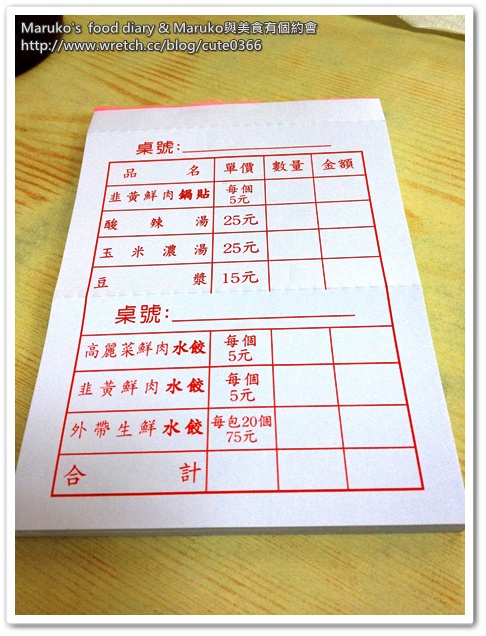 Maruko's food diary & Maruko與美食有個約會
http://www.wretch.cc/blog/cute0366
桌號:
品名 單價 數量 金額
韭黃鮮肉鍋貼 每個5元
酸辣湯 25元
玉米濃湯 25元
豆漿 15元
桌號:
高麗菜鮮肉水餃 每個5元
韭黃鮮肉水餃 每個5元
外帶生鮮水餃 每包20個75元
合計